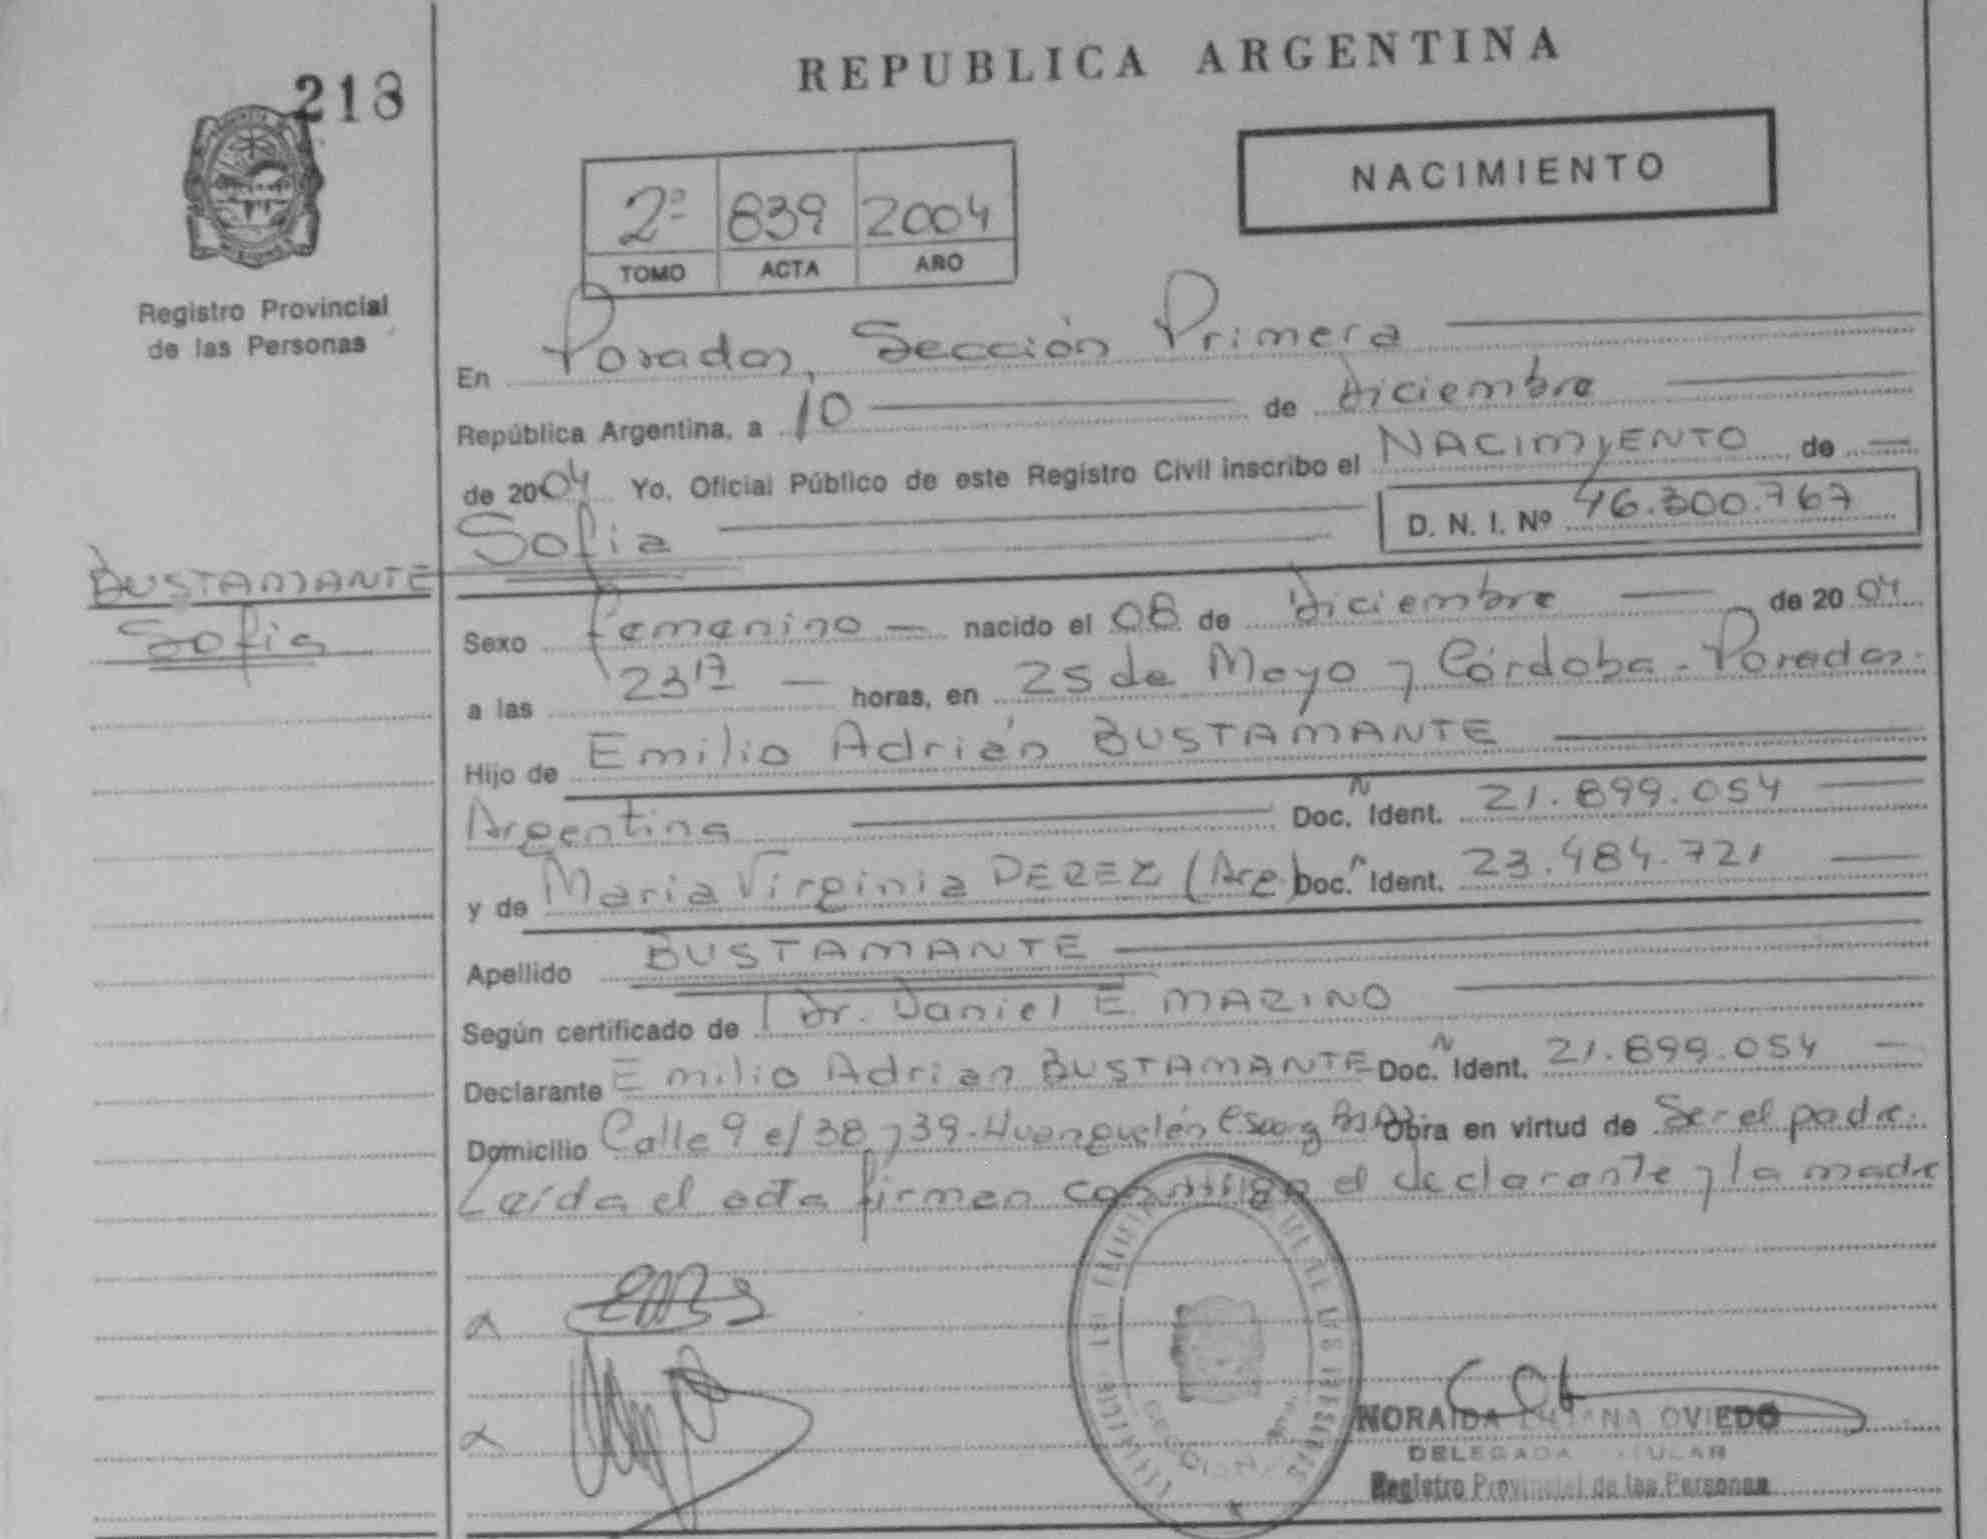 REPUBLICA ARGENTINA
218
NACIMIENTO
2º 839 2004
TOMO ACTA AÑO
Registro Provincial
de las Personas
En Posadas, Sección Primera
República Argentina, a 10 de diciembre
de 2004 Yo, Oficial Público de este Registro Civil inscribo el NACIMIENTO de
Sofia
D. N. I. Nº 46.300.767
BUSTAMANTE
Sofia
Sexo femenino nacido el 08 de diciembre de 2004
a las 23 17 horas, en 25 de Mayo y Córdoba - Posadas.
Hijo de Emilio Adrián BUSTAMANTE
Argentina Doc. Ident. 21.899.054
y de Maria Virginia PEREZ (Arg) Doc. Ident. 23.484.721
Apellido BUSTAMANTE
Según certificado de Dr. Daniel E. MARINO
Declarante Emilio Adrian BUSTAMANTE Doc. Ident. 21.899.054
Domicilio Calle 9 e/ 38 y 39 - Huanguelén Obra en virtud de Ser el padre.
Leída el acta firman conmigo el declarante y la madre
NORAIDA OVIEDO
DELEGADA TITULAR
Registro Provincial de las Personas